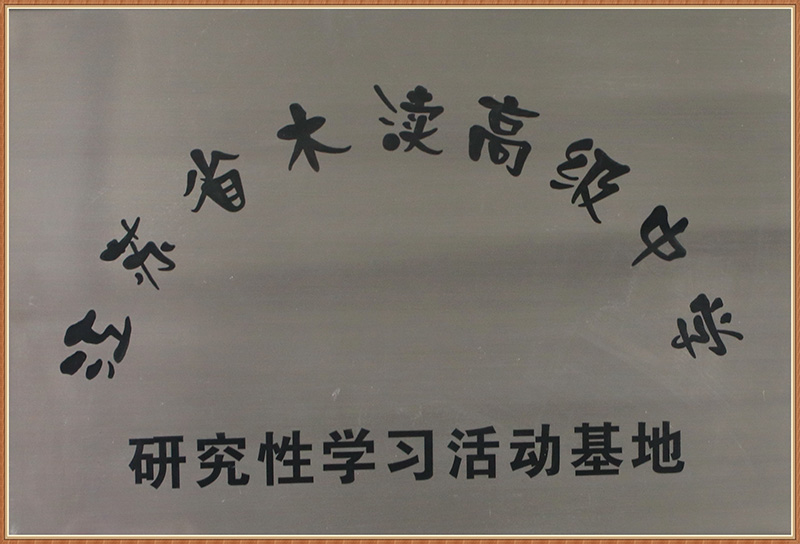 江苏省木渎高级中学
研究性学习活动基地